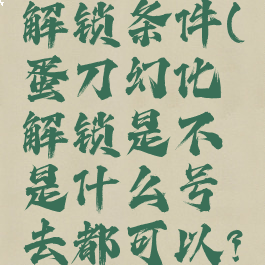 解锁条件(
蛋刀幻化
解锁是不
是什么号
去都可以?